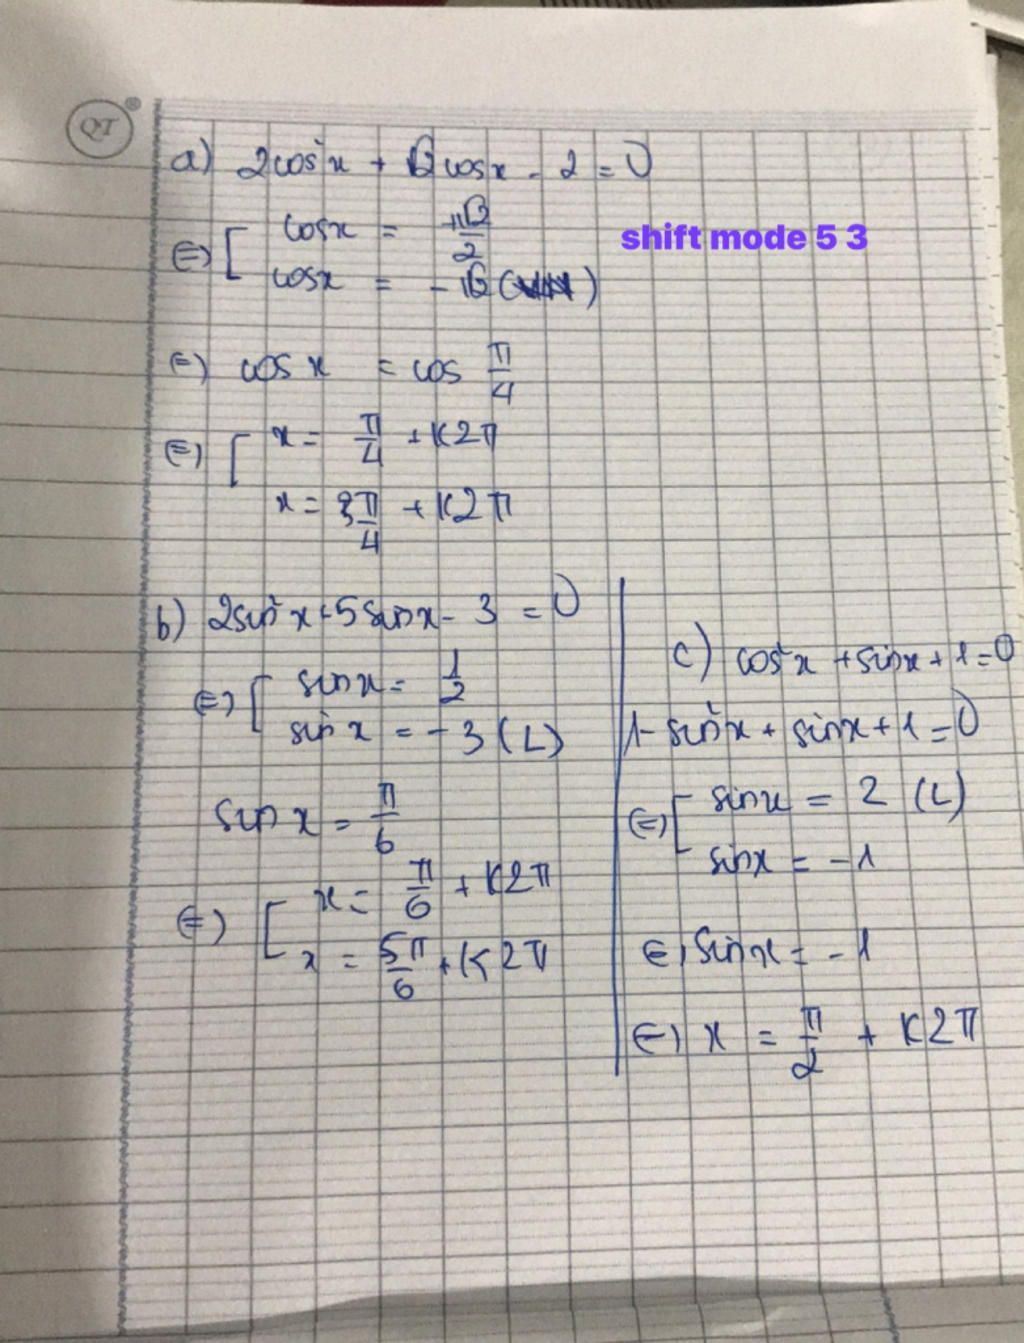 QT
a) 2cos²x + √2 cosx - 2 = 0
⇔ [ cosx = √2/2
cosx = -√2 ( )
shift mode 5 3
⇔ cos x = cos π/4
⇔ [ x = π/4 + K2π
x = 3π/4 + K2π
b) 2sin²x + 5sinx - 3 = 0
⇔ [ sinx = 1/2
sin x = -3 (L)
sin x = π/6
⇔ [ x = π/6 + K2π
x = 5π/6 + K2π
c) cos²x + sinx + 1 = 0
1 - sin²x + sinx + 1 = 0
⇔ [ sinx = 2 (L)
sinx = -1
⇔ sinx = -1
⇔ x = π/2 + K2π